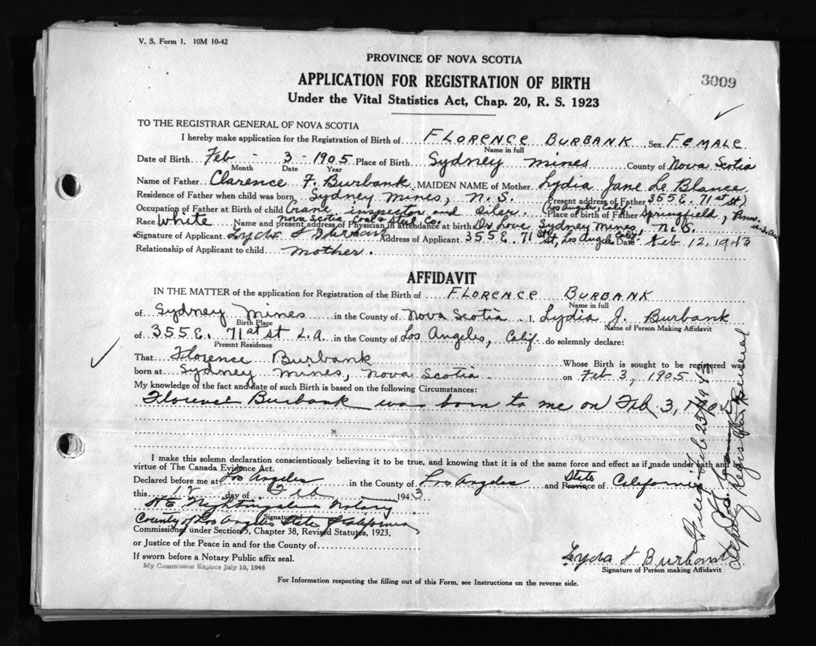 V. S. Form 1. 10M 10-42
PROVINCE OF NOVA SCOTIA
APPLICATION FOR REGISTRATION OF BIRTH
3009
Under the Vital Statistics Act, Chap. 20, R. S. 1923
TO THE REGISTRAR GENERAL OF NOVA SCOTIA
I hereby make application for the Registration of Birth of FLORENCE BURBANK Sex FEMALE
Name in full
Date of Birth Feb - 3 - 1905 Place of Birth Sydney Mines County of Nova Scotia
Month Date Year
Name of Father Clarence F. Burbank MAIDEN NAME of Mother Lydia Jane Le Blance
Residence of Father when child was born Sydney Mines, N.S. Present address of Father 355 E. 71st St)
(Los Angeles, Calif.
Occupation of Father at Birth of child Crane inspector and Oiler. Place of birth of Father Springfield,
Nova Scotia Coal & Steel Co.
Race White Name and present address of Physician in attendance at birth Dr Love Sydney Mines, N.S.
Signature of Applicant Lydia J Burbank Address of Applicant 355 E. 71st St, Los Angeles Calif. Date Feb 12, 1943
Relationship of Applicant to child mother.
AFFIDAVIT
IN THE MATTER of the application for Registration of the Birth of FLORENCE BURBANK
of Sydney Mines in the County of Nova Scotia I, Lydia J. Burbank
Birth Place Name of Person Making Affidavit
of 355 E. 71st St L.A. in the County of Los Angeles, Calif. do solemnly declare:
Present Residence
That Florence Burbank Whose Birth is sought to be registered was
born at Sydney Mines, Nova Scotia on Feb 3, 1905
My knowledge of the fact and date of such Birth is based on the following Circumstances:
Florence Burbank was born to me on Feb 3, 1905
I make this solemn declaration conscientiously believing it to be true, and knowing that it is of the same force and effect as if made under oath and
virtue of The Canada Evidence Act.
Declared before me at Los Angeles in the County of Los Angeles and State Province of California
this 12 day of Feb 1943
Nightingale Notary
Signature
County of Los Angeles State of California
Commissioner under Section 5, Chapter 38, Revised Statutes, 1923,
or Justice of the Peace in and for the County of
If sworn before a Notary Public affix seal.
My Commission Expires July 10, 1946
Lydia J Burbank
Signature of Person making Affidavit
For Information respecting the filling out of this Form, see Instructions on the reverse side.
Filed Feb 25 1943
Deputy Registrar General